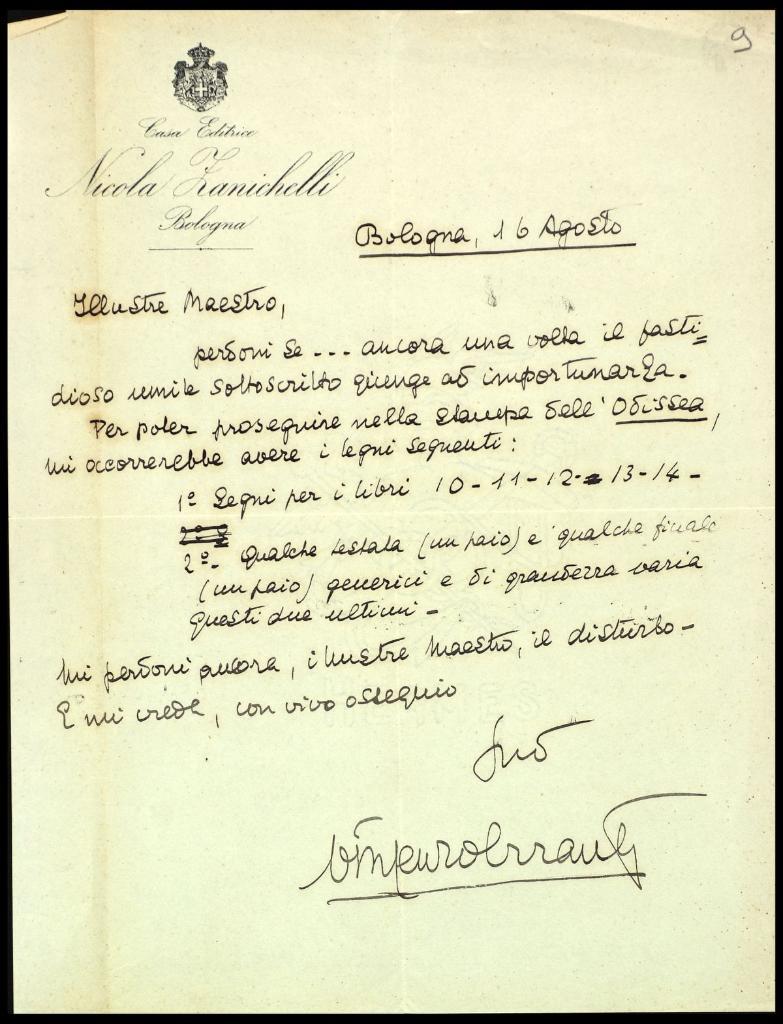 9
Casa Editrice
Nicola Zanichelli
Bologna
Bologna, 16 Agosto
Illustre Maestro,
perdoni se --- ancora una volta il fasti=
dioso umile sottoscritto giunge ad importunarLa.
Per poter proseguire nella stampa dell'Odissea,
mi occorrerebbe avere i legni seguenti:
1º Legni per i libri 10-11-12-13-14-
2º- qualche testata (un paio) e qualche finale
(un paio) generici e di grandezza varia
questi due ultimi -
Mi perdoni ancora, illustre Maestro, il disturbo -
E mi creda, con vivo ossequio
Suo
Vincenzo Errante